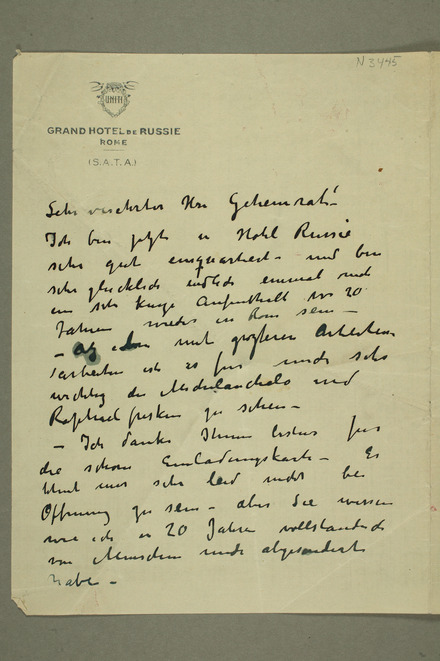 N 3445
UNITI
GRAND HOTEL DE RUSSIE
ROME
(S.A.T.A.)
Sehr verehrter Herr Geheimrat!
Ich bin jetzt in Hotel Russie
sehr gut einquartiert – und bin
sehr glücklich endlich einmal nach
ein sehr kurze Aufenthalt vor 20
Jahren wieder in Rom sein –
– mit grösseren Arbeiten
ich es für mich sehr
wichtig die Michelangelo und
Raphael fresken zu sehen –
– Ich danke Ihnen bestens für
die schöne Einladungskarte – Es
thut mir sehr leid nicht bei
Öffnung zu sein – aber Sie wissen
wie ich in 20 Jahren vollständig
von Menschen mich abgesondert
habe –